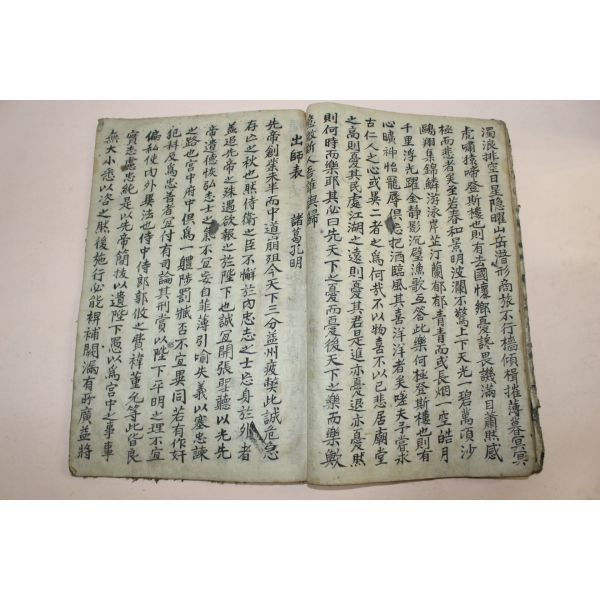 濁浪排空日星隱曜山岳潛形商旅不行檣傾楫摧薄暮冥冥
虎嘯猿啼登斯樓也則有去國懷鄕憂讒畏譏滿目蕭然感
極而悲者矣至若春和景明波瀾不驚上下天光一碧萬頃沙
鷗翔集錦鱗游泳岸芷汀蘭郁郁靑靑而或長烟一空皓月
千里浮光躍金靜影沉璧漁歌互答此樂何極登斯樓也則有
心曠神怡寵辱俱忘把酒臨風其喜洋洋者矣嗟夫予嘗求
古仁人之心或異二者之爲何哉不以物喜不以己悲居廟堂
之高則憂其民處江湖之遠則憂其君是進亦憂退亦憂然
則何時而樂耶其必曰先天下之憂而憂後天下之樂而樂歟
噫微斯人吾誰與歸
出師表 諸葛孔明
先帝創業未半而中道崩殂今天下三分益州疲弊此誠危急
存亡之秋也然侍衛之臣不懈於內忠志之士忘身於外者
盖追先帝之殊遇欲報之於陛下也誠宜開張聖聽以光先
帝遺德恢弘志士之氣不宜妄自菲薄引喩失義以塞忠諫
之路也宮中府中俱爲一體陟罰臧否不宜異同若有作奸
犯科及爲忠善者宜付有司論其刑賞以昭陛下平明之理不宜
偏私使內外異法也侍中侍郞郭攸之費褘董允等此皆良
實志慮忠純是以先帝簡拔以遺陛下愚以爲宮中之事事
無大小悉以咨之然後施行必能裨補闕漏有所廣益將